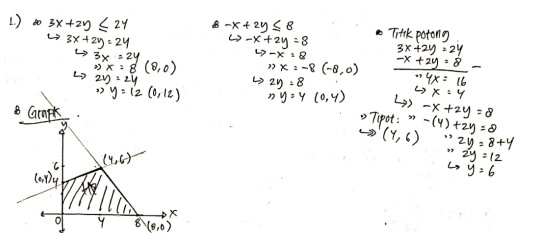 1.) 3x + 2y ≤ 24
↳ 3x + 2y = 24
↳ 3x = 24
» x = 8 (8,0)
↳ 2y = 24
» y = 12 (0,12)
-x + 2y ≤ 8
↳ -x + 2y = 8
↳ -x = 8
» x = -8 (-8,0)
↳ 2y = 8
» y = 4 (0,4)
Titik potong
3x + 2y = 24
-x + 2y = 8 -
» 4x = 16
↳ x = 4
↳» -x + 2y = 8
» Tipot: » -(4) + 2y = 8
↳» (4,6) » 2y = 8+4
» 2y = 12
↳ y = 6
Grafik
y
(4,6)
6
(0,4) 4
HP
0 4 8 (8,0) X